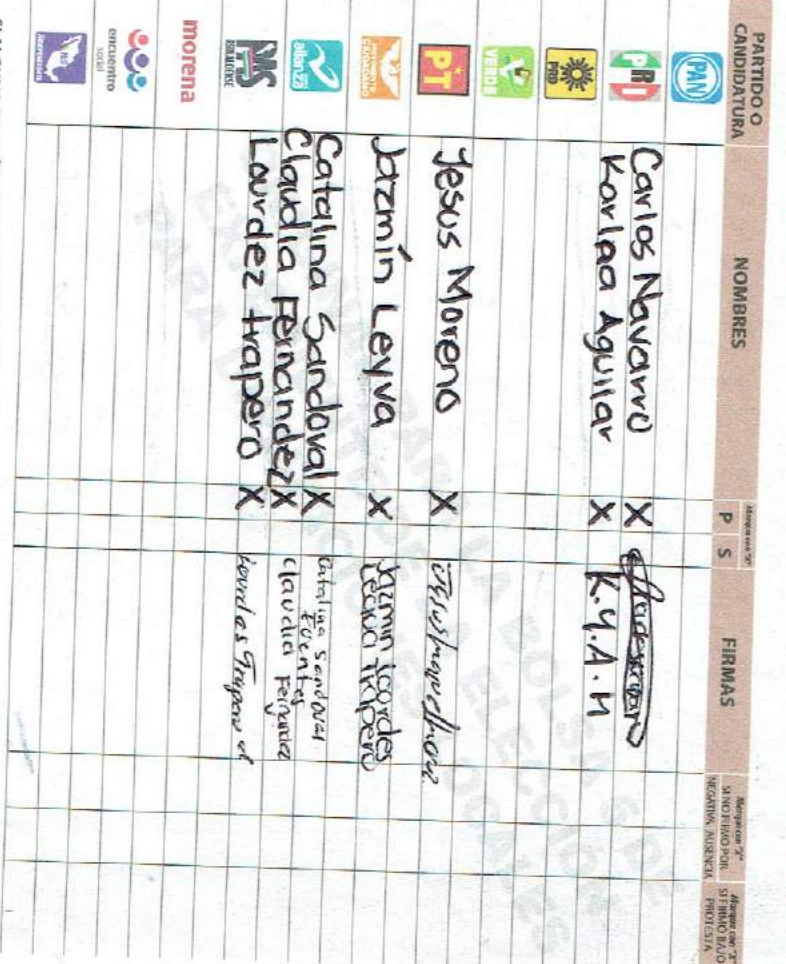 PARTIDO O CANDIDATURA
NOMBRES
Marque con "X"
P S
FIRMAS
Marque con "X"
SI NO FIRMÓ POR:
NEGATIVA AUSENCIA
Marque con "X"
SI FIRMÓ BAJO PROTESTA
PAN
PRI
Carlos Navarro X
Karlaa Aguilar X K.Y.A.H
PRD
VERDE
PT
Jesus Moreno X
MOVIMIENTO CIUDADANO
Jazmín Leyva X Jazmin Lourdes
Leyva Trapero
alianza
Catalina Sandoval X Catalina Sandoval
Fuentes
Claudia Fernandez X Claudia Fernandez
PAS
SINALOENSE
Lourdez trapero X Lourdes Trapero
morena
encuentro
social
PARA LA BOLSA
DE LA ELECCIÓN
LOCALES